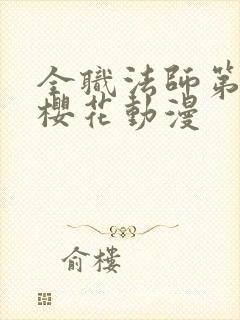 全職法師第
櫻花動漫
俞樓